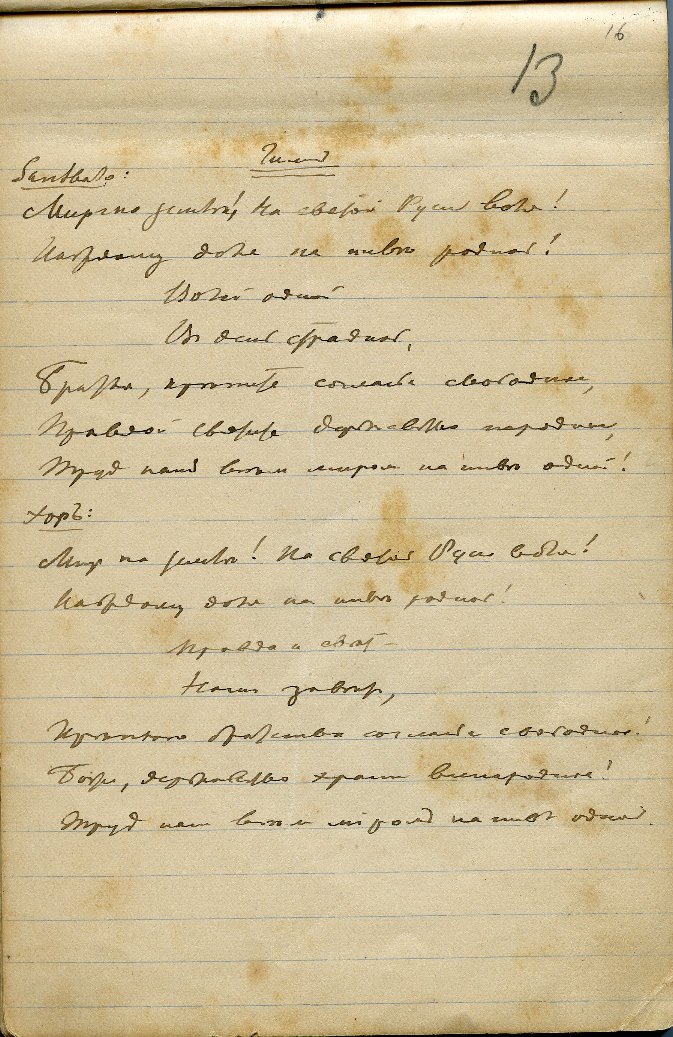 16
13
Гимнъ
Запѣвало:
Мир на землѣ! На святой Руси воля!
Каждому доля на нивѣ родной!
Волей одной
В день страдной,
Братья, крѣпите согласье свободное,
Правдой святите державство народное,
Труд нашъ всѣм миром на нивѣ одной!
Хоръ:
Мир на землѣ! На святой Руси воля!
Каждому доля на нивѣ родной!
Правда и свѣт –
Наш завѣт,
Крѣпкого братства согласье свободное!
Боже, державство храни всенародное!
Труд наш всѣм міромъ на нивѣ одной.